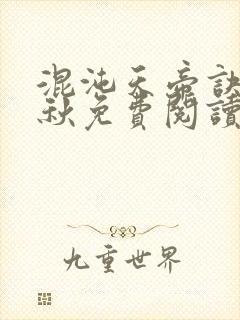 混沌天帝訣
秋免費閱讀
九重世界